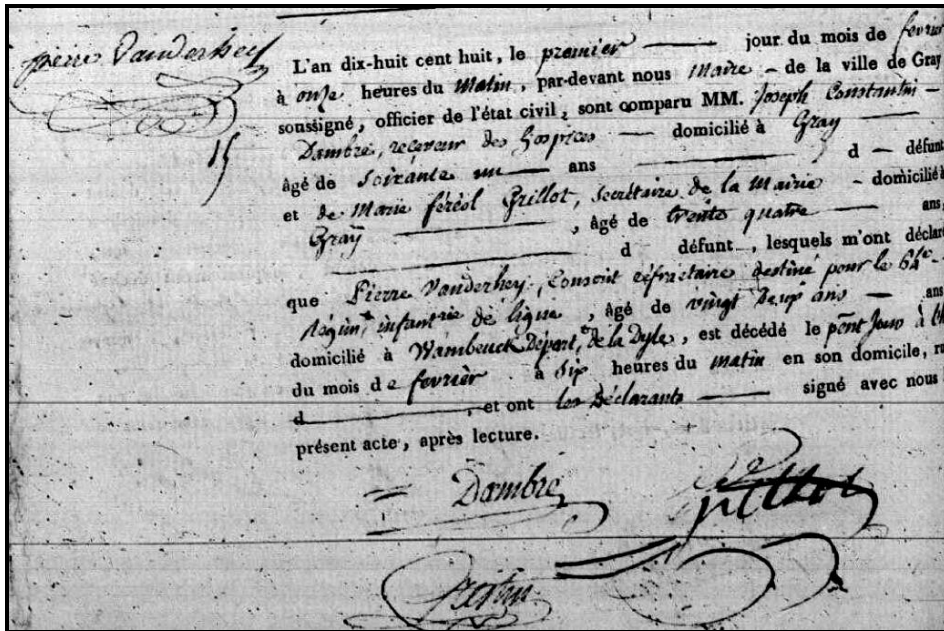 pierre Vanderhey
15
L'an dix-huit cent huit, le premier jour du mois de fevrier
à onze heures du Matin, par-devant nous Maire de la ville de Gray
soussigné, officier de l'état civil, sont comparu MM. Joseph Constantin
Dambre, receveur des hospices domicilié à Gray
âgé de Soixante un ans d défunt
et de Marie féréol Grillot, secrétaire de la Mairie domicilié à
Gray, âgé de trente quatre ans,
d défunt, lesquels m'ont déclaré
que Pierre Vanderhey, Conscrit réfractaire destiné pour le 64e
Régimt infantrie de ligne, âgé de vingt deux ans ans
domicilié à Wambeuck Départt de la Dyle, est décédé le pent Jour à
du mois de fevrier à Six heures du matin en son domicile, ru
d, et ont les Déclarants signé avec nous
présent acte, après lecture.
Dambre
grillot